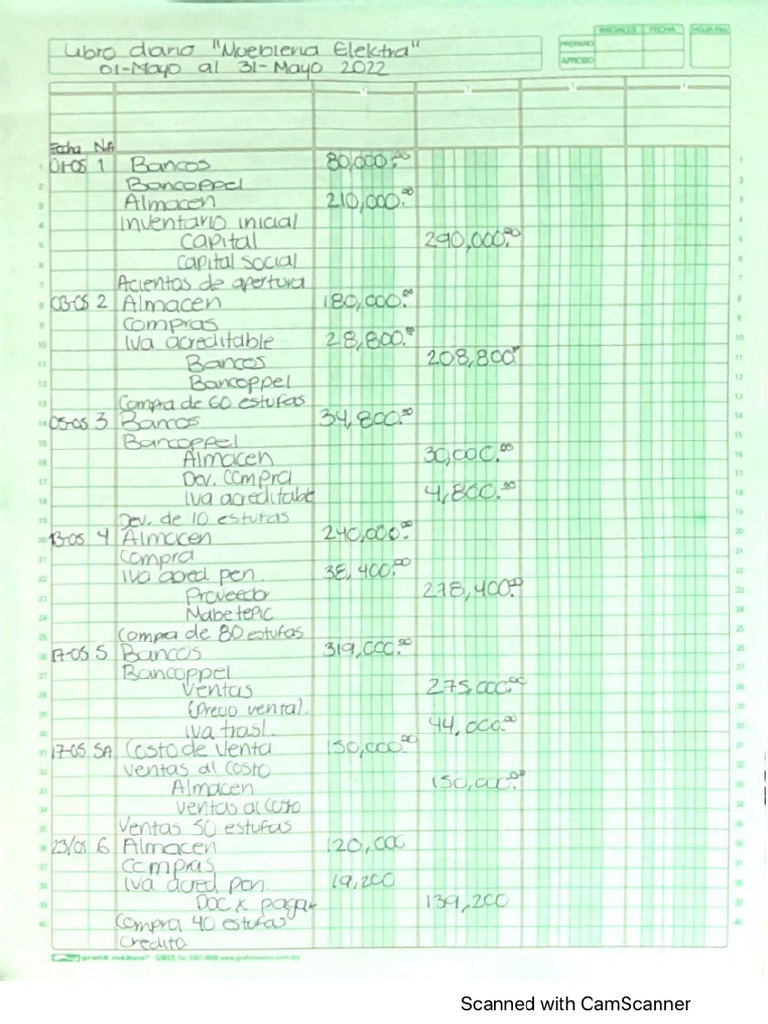 Libro diario "Muebleria Elektra"
01-Mayo al 31-Mayo 2022
INICIALES FECHA HOJA No.
PREPARO
APROBO
1 2 3 4
Fecha NA
1 01-05 1 Bancos 80,000.00 1
2 Bancoppel 2
3 Almacen 210,000.00 3
4 inventario inicial 4
5 Capital 290,000.00 5
6 Capital social 6
7 Acientos de apertura 7
8 03-05 2 Almacen 180,000.00 8
9 Compras 9
10 Iva acreditable 28,800.00 10
11 Bancos 208,800 11
12 Bancoppel 12
13 Compra de 60 estufas 13
14 05-05 3 Bancos 34,800.00 14
15 Bancoppel 15
16 Almacen 30,000.00 16
17 Dev. compra 17
18 Iva acreditable 4,800.00 18
19 Dev. de 10 estufas 19
20 13-05 4 Almacen 240,000.00 20
21 Compra 21
22 Iva acred pen. 38,400.00 22
23 Proveedor 278,400.00 23
24 Mabetepic 24
25 Compra de 80 estufas 25
26 17-05 5 Bancos 319,000.00 26
27 Bancoppel 27
28 Ventas 275,000.00 28
29 (precio venta). 29
30 Iva trasl. 44,000.00 30
31 17-05 5A Costo de Venta 150,000.00 31
32 Ventas al costo 32
33 Almacen 150,000.00 33
34 ventas al costo 34
35 Ventas 50 estufas 35
36 23/05 6 Almacen 120,000 36
37 Compras 37
38 Iva acred pen. 19,200 38
39 Doc x pagar 139,200 39
40 Compra 40 estufas 40
Credito
www.grafimexico.com.mx
Scanned with CamScanner